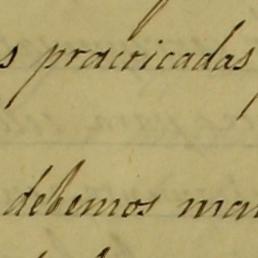 s practicadas
debemos man